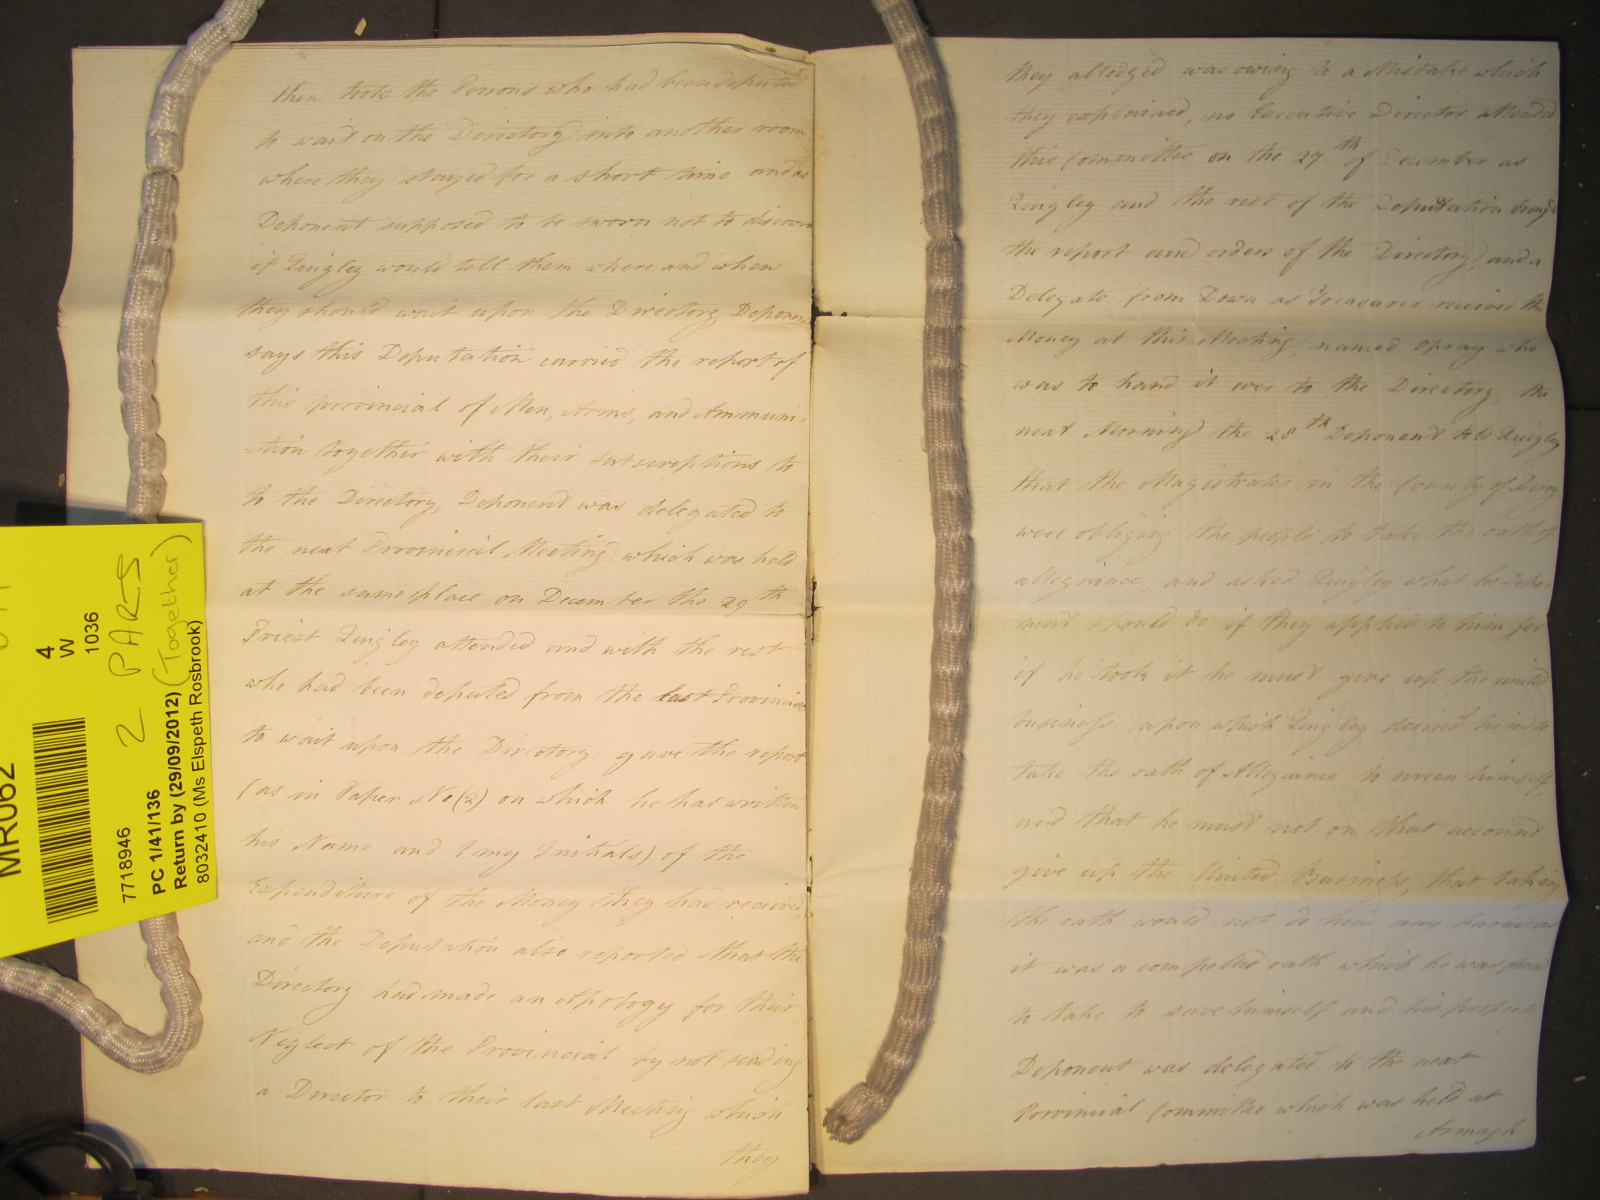 then took the Persons who had been deputed
to wait on the Directory into another room
where they stayed for a short time and as
Deponent supposed to be sworn not to discover
if Quigley would tell them where and when
they should wait upon the Directory, Deponent
says this Deputation carried the report of
this provincial of Men, Arms, and Ammuni-
=tion together with their subscriptions to
to the Directory, Deponent was delegated to
the next Provincial Meeting which was held
at the same place on December the 29th
Priest Quigley attended and with the rest
who had been deputed from the last Provincial
to wait upon the Directory gave the report
(as in Paper No (2) on which he has written
his Name and I my Initials) of the
Expenditure of the Money they had received,
and the Deputation also reported that the
Directory had made an apology for their
Neglect of the Provincial by not sending
a Director to their last Meeting which
they
they alledged was owing to a Mistake which
they explained, no Executive Director attended
this Committee on the 27th of December as
Quigley and the rest of the Deputation brought
the report and orders of the Directory, and a
Delegate from Down as Treasurer received the
Money at this Meeting, named Opray who
was to hand it over to the Directory the
next Morning the 28th Deponent told Quigley
that the Magistrates in the County of
were obliging the people to take the oath of
allegiance, and asked Quigley what he Depo-
=nent should do if they applied to him for
if he took it he must give up the united
business upon which Quigley desired him to
take the oath of Allegiance to screen himself
and that he must not on that account
give up the United Business, that taking
the oath would not do him any harm as
it was a compelled oath which he was forced
to take to save himself and his property,
Deponent was delegated to the next
Porvincial Committee which was held at
Armagh
MR062
4
W
1036
7718946
2 PARTS
(Together)
PC 1/41/136
Return by (29/09/2012)
8032410 (Ms Elspeth Rosbrook)